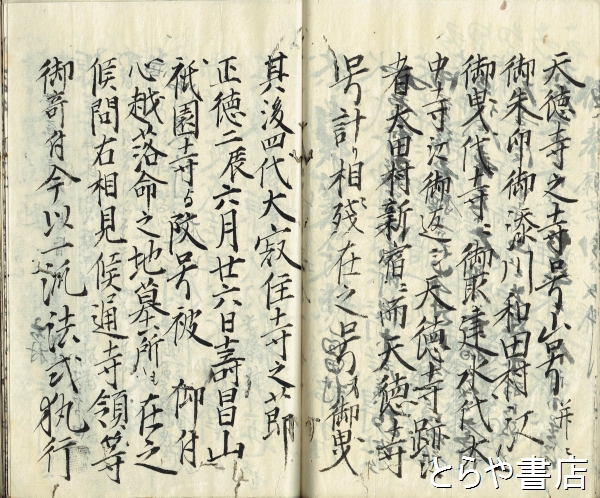 天徳寺之寺号山号并ニ
御朱印御添川和田村江
御曳代寺ニ御取建水代大
中寺江御返シ天徳寺跡江
者太田村新宿ニ而天徳寺
号計り相残在之号又御曳
其後四代大寂住寺之節
正徳二辰六月廿六日壽昌山
祇園寺与改号被 仰付
心越落命之地墓所も在之
候間右相見候通寺領等
御寄付今以一流法式執行
とらや書店